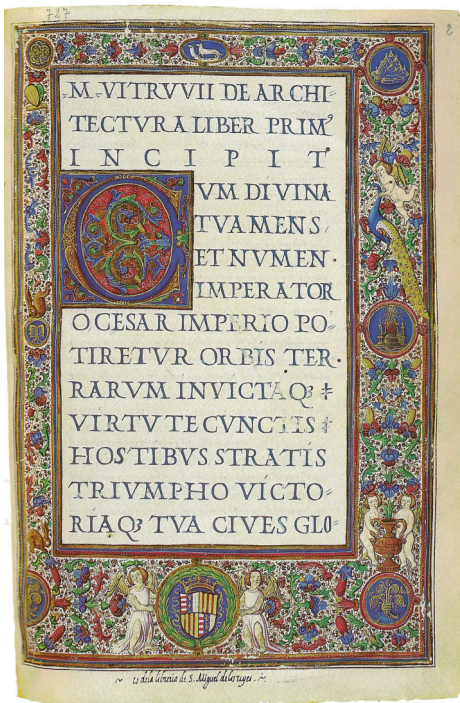 727
2
M VITRVVII DE ARCHI=
TECTVRA LIBER PRIMꝰ
INCIPIT
CVM DIVINA
TVA MENS
ET NVMEN·
IMPERATOR
O CESAR IMPERIO PO=
TIRETVR ORBIS TER·
RARVM INVICTAQꝫ
VIRTVTE CVNCTIS
HOSTIBVS STRATIS
TRIVMPHO VICTO=
RIAQꝫ TVA CIVES GLO=
~ es de la libreria de S. Miguel de los reyes. ~